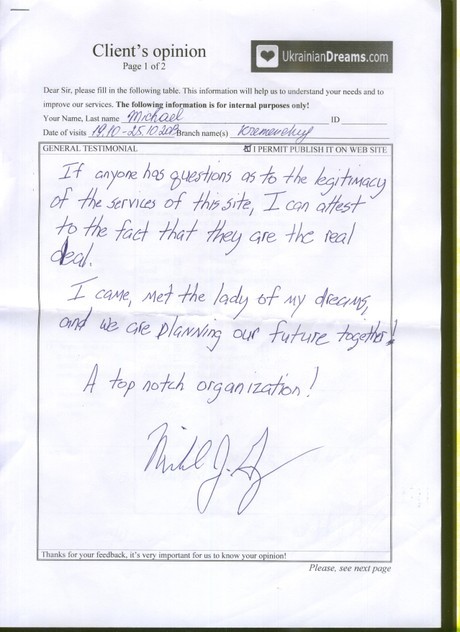 Client's opinion
Page 1 of 2
UkrainianDreams.com
Dear Sir, please fill in the following table. This information will help us to understand your needs and to
improve our services. The following information is for internal purposes only!
Your Name, Last name Michael ID
Date of visits 19.10 - 25.10 Branch name(s) Kremenchug
GENERAL TESTIMONIAL I PERMIT PUBLISH IT ON WEB SITE
If anyone has questions as to the legitimacy
of the services of this site, I can attest
to the fact that they are the real
deal.
I came, met the lady of my dreams,
and we are planning our future together!
A top notch organization!
Thanks for your feedback, it's very important for us to know your opinion!
Please, see next page